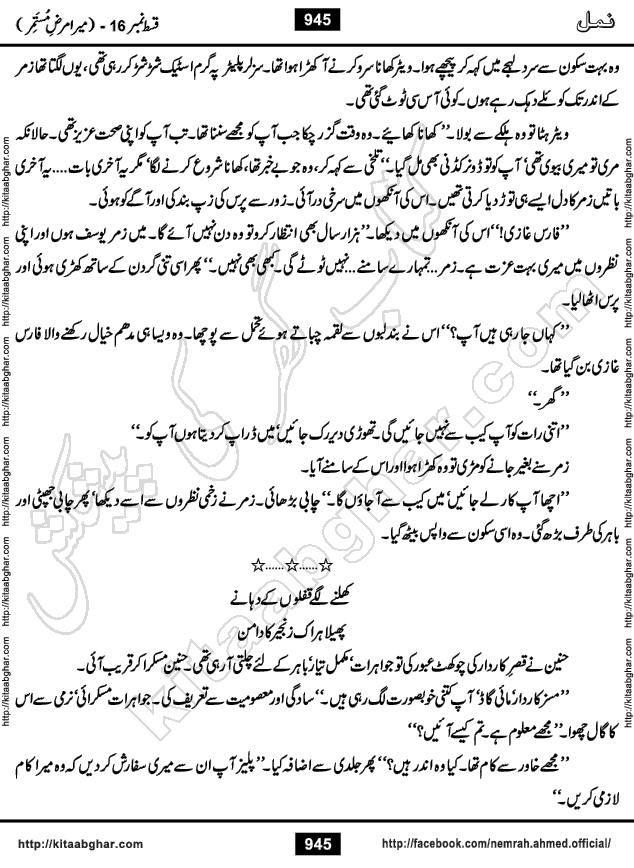 نمل
945
قسط نمبر 16 - (میرا مرضِ مُستَمِر)
وہ بہت سکون سے سرد لہجے میں کہہ کر پیچھے ہوا۔ ویٹر کھانا سرو کرنے آ کھڑا ہوا تھا۔ سزلر پلیٹر پہ گرم اسٹیک شڑ شڑ کر رہی تھی، یوں لگتا تھا زمر
کے اندر تک کوئلے دہک رہے ہوں۔ کوئی آس سی ٹوٹ گئی تھی۔
ویٹر ہٹا تو وہ ہلکے سے بولا۔ ’’کھانا کھائیے۔ وہ وقت گزر چکا جب آپ کو مجھے سننا تھا۔ تب آپ کو اپنی صحت عزیز تھی۔ حالانکہ
مری تو میری بیوی تھی‘ آپ کو تو ڈونر کڈنی بھی مل گیا۔‘‘ تلخی سے کہہ کر، وہ جو بے خبر تھا، کھانا شروع کرنے لگا‘ مگر یہ آخری بات.... یہ آخری
باتیں زمر کا دل ایسے ہی توڑ دیا کرتی تھیں۔ اس کی آنکھوں میں سرخی در آئی۔ زور سے پرس کی زپ بند کی اور آگے کو ہوئی۔
’’فارس غازی!‘‘ اس کی آنکھوں میں دیکھا۔ ’’ہزار سال بھی انتظار کرو تو وہ دن نہیں آئے گا۔ میں زمر یوسف ہوں اور اپنی
نظروں میں میری بہت عزت ہے۔ زمر... تمہارے سامنے... نہیں ٹوٹے گی۔ کبھی بھی نہیں۔‘‘ پھر اسی تنی گردن کے ساتھ کھڑی ہوئی اور
پرس اٹھا لیا۔
’’کہاں جا رہی ہیں آپ؟‘‘ اس نے بند لبوں سے لقمہ چباتے ہوئے تحمل سے پوچھا۔ وہ ویسا ہی مدھم خیال رکھنے والا فارس
غازی بن گیا تھا۔
’’گھر۔‘‘
’’اتنی رات کو آپ کیب سے نہیں جائیں گی۔ تھوڑی دیر رک جائیں‘ میں ڈراپ کر دیتا ہوں آپ کو۔‘‘
زمر سنے بغیر جانے کو مڑی تو وہ کھڑا ہوا اور اس کے سامنے آیا۔
’’اچھا آپ کار لے جائیں‘ میں کیب سے آ جاؤں گا۔‘‘ چابی بڑھائی۔ زمر نے زخمی نظروں سے اسے دیکھا‘ پھر چابی جھپٹی اور
باہر کی طرف بڑھ گئی۔ وہ اسی سکون سے واپس بیٹھ گیا۔
☆......☆......☆
کھلنے لگے قفلوں کے دہانے
پھیلا ہر اک زنجیر کا دامن
حنین نے قصرِ کاردار کی چوکھٹ عبور کی تو جواہرات‘ مکمل تیار‘ باہر کے لئے چلتی آ رہی تھی۔ حنین مسکرا کر قریب آئی۔
’’مسز کاردار‘ مائی گاڈ‘ آپ کتنی خوبصورت لگ رہی ہیں۔‘‘ سادگی اور معصومیت سے تعریف کی۔ جواہرات مسکرائی‘ نرمی سے اس
کا گال چھوا۔ ’’مجھے معلوم ہے۔ تم کیسے آئیں؟‘‘
’’مجھے خاور سے کام تھا۔ کیا وہ اندر ہیں؟‘‘ پھر جلدی سے اضافہ کیا۔ ’’پلیز آپ ان سے میری سفارش کر دیں کہ وہ میرا کام
لازمی کریں۔‘‘
http://kitaabghar.com
945
http://facebook.com/nemrah.ahmed.official/
http://kitaabghar.com
http://kitaabghar.com
http://kitaabghar.com
http://kitaabghar.com
http://kitaabghar.com
http://kitaabghar.com
http://kitaabghar.com
http://kitaabghar.com
http://kitaabghar.com
http://kitaabghar.com
http://kitaabghar.com
http://kitaabghar.com
کتاب گھر کی پیشکش
kitaabghar.com